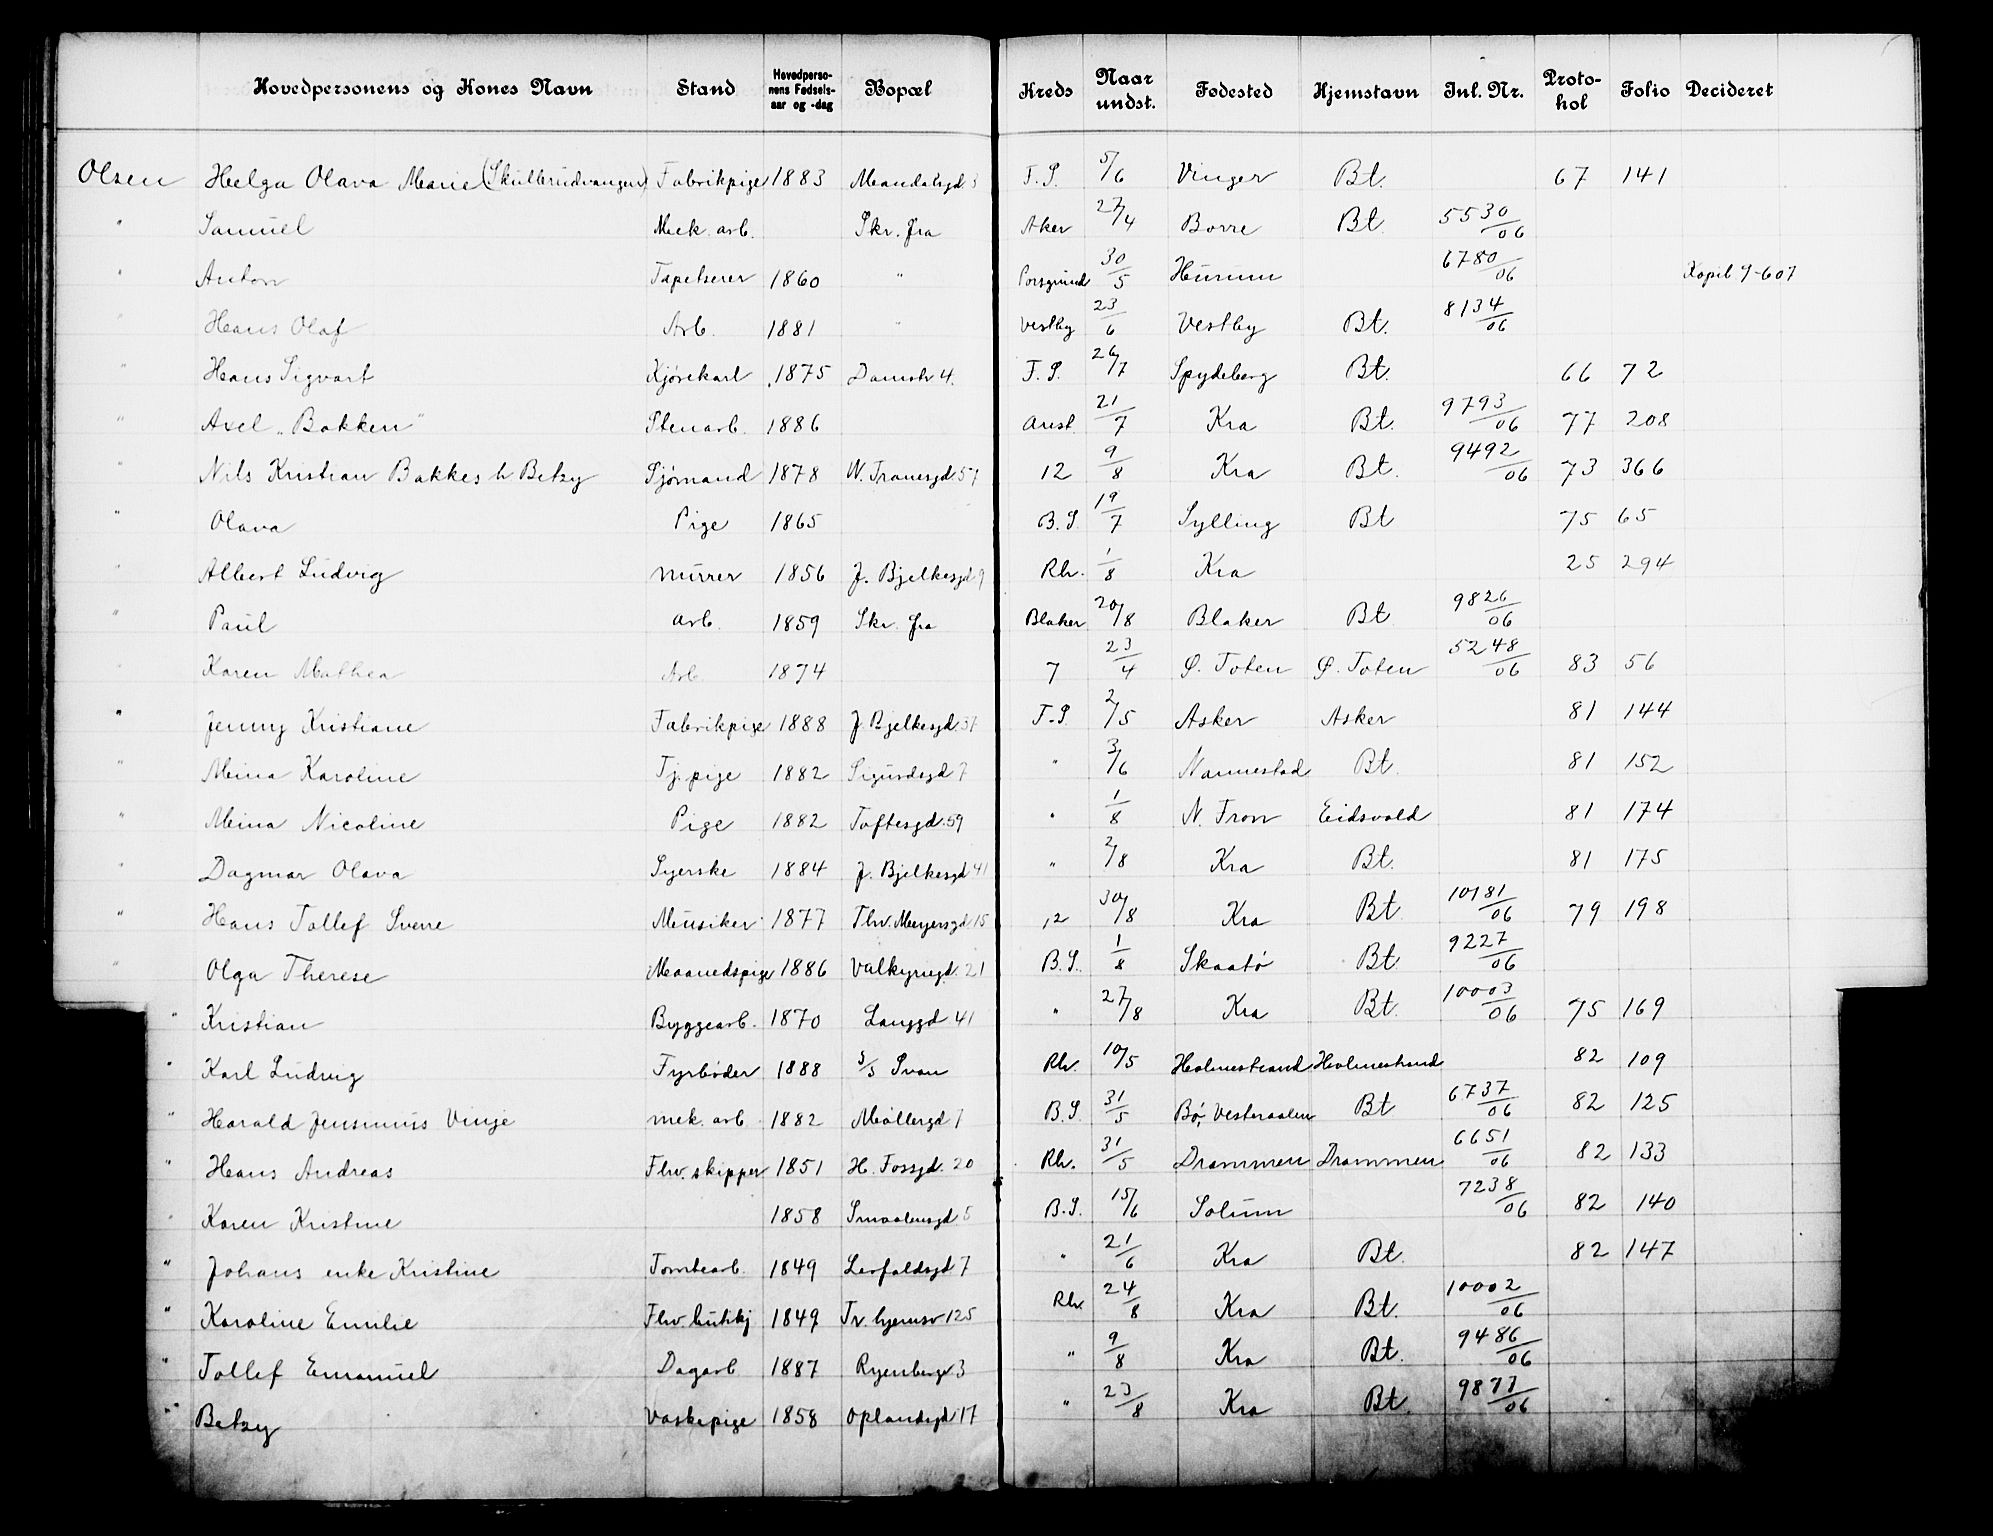 Hovedpersonens og Kones Navn Stand Hovedpersonens Fødselsaar og -dag Bopæl Kreds Naar undst. Fødested Hjemstavn Jnl. Nr. Protokol Folio Decideret
Olsen Helga Olava Marie (Skullerudvangen) Fabrikpige 1883 Mandalsgd. 3 F.S. 5/6 Vinger Bt. 67 141
" Samuel Mek. arb. Skr. fra Aker 27/4 Borre Bt. 5530/06
" Anton Tapetserer 1860 " Porsgrund 30/5 Hurum 6780/06 Kopib 9-607
" Hans Olaf Arb. 1881 " Vestby 23/6 Vestby Bt. 8134/06
" Hans Sigvart Kjørekarl 1875 Damstr 4. F.S. 26/7 Spydeberg Bt. 66 72
" Axel "Bakken" Stenarb. 1886 Anst. 21/7 Kra Bt. 9793/06 77 208
" Nils Kristian Bakkes h Betzy Sjømand 1878 W. Tranesgd. 57 12 9/8 Kra Bt. 9492/06 73 366
" Olava Pige 1865 B.S. 19/7 Sylling Bt 75 65
" Albert Ludvig murer 1856 J. Bjelkesgd 9 Rh. 1/8 Kra 25 294
" Paul arb. 1859 Skr. fra Blaker 20/8 Blaker Bt. 9826/06
" Karen Mathea Arb. 1874 7 23/4 Ø. Toten Ø. Toten 5248/06 83 56
" Jenny Kristiane Fabrikpige 1888 J. Bjelkesgd. 51 F.S. 2/5 Asker Asker 81 144
" Mina Karoline Tj.pige 1882 Sigurdsgd 7 " 3/6 Nannestad Bt. 81 152
" Mina Nicoline Pige 1882 Toftesgd. 59 " 1/8 N. Fron Eidsvold 81 174
" Dagmar Olava Syerske 1884 J. Bjelkesgd 41 " 2/8 Kra Bt. 81 175
" Hans Tollef Sverre Musiker 1877 Thv. Meyersgd. 15 12 30/8 Kra Bt. 10181/06 79 198
" Olga Therese Maanedspige 1886 Valkyriegd. 21 B.S. 1/8 Skaatø Bt. 9227/06
" Kristian Byggearb. 1870 Langgd 41 " 27/8 Kra Bt. 10003/06 75 169
" Karl Ludvig Fyrbøder 1888 S/S Svan Rh. 10/5 Holmestrand Holmestrand 82 109
" Harald Jensinius Vinje mek. arb 1882 Møllergd 7 B.S. 31/5 Bø, Vesteraalen Bt 6737/06 82 125
" Hans Andreas Fhv. skipper 1851 H. Fossgd. 20 Rh. 31/5 Drammen Drammen 6651/06 82 133
" Karen Kristine 1858 Smaalensgd 5 B.S. 15/6 Solum 7238/06 82 140
" Johans enke Kristine Tomtearb. 1849 Lerfaldsgd 7 " 21/6 Kra Bt. 82 147
" Karoline Emilie Fhv. 1849 Tr. hjemsv 125 Rh. 24/8 Kra Bt. 10002/06
" Tollef Emanuel Dagarb 1887 Ryenbergv 3 " 9/8 Kra Bt. 9486/06
" Betzy Vaskepige 1858 Oplandsgd 17 " 23/8 Kra Bt. 9873/06